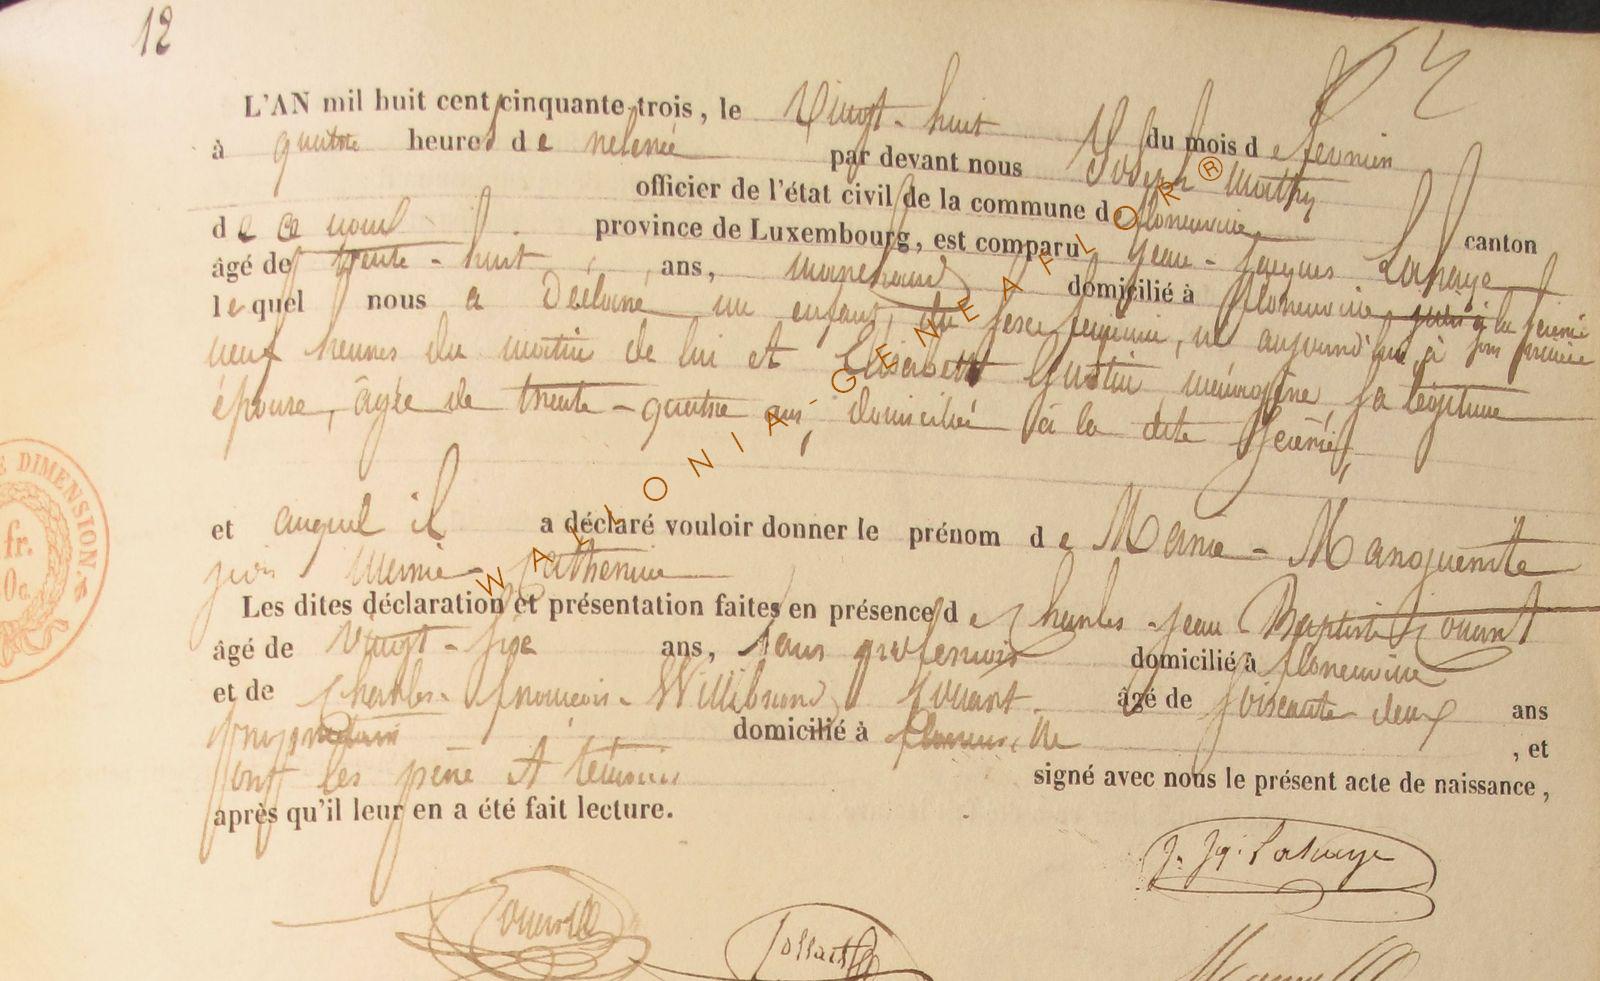 12
L'AN mil huit cent cinquante-trois, le Vingt-huit du mois de fevrier
à quatre heures de relevée par devant nous Joseph Mathy
officier de l'état civil de la commune de floranville
de ce nom canton province de Luxembourg, est comparu Jean-Jacques Lahaye
âgé de trente-huit ans, marchand domicilié à floranville
lequel nous a Déclaré un enfant du sexe feminin, né aujourd'hui à
neuf heures du matin de lui et Elisabeth Gustin, menagère, sa légitime
épouse, agée de trente-quatre ans, domicilié à la dite
et auquel il a déclaré vouloir donner le prénom de Marie-Marguerite
Marie Catherine
Les dites déclaration et présentation faites en présence de Charles-Jean Baptiste
âgé de Vingt-six ans, sans profession domicilié à floranville
et de Charles-françois-Willibrord âgé de soixante deux ans
domicilié à floranville, et
ont les père et témoins signé avec nous le présent acte de naissance,
après qu'il leur en a été fait lecture.
J. Jq. Lahaye
FR.
E DIMENSION.
WALLONIA-GENEAFLOR®